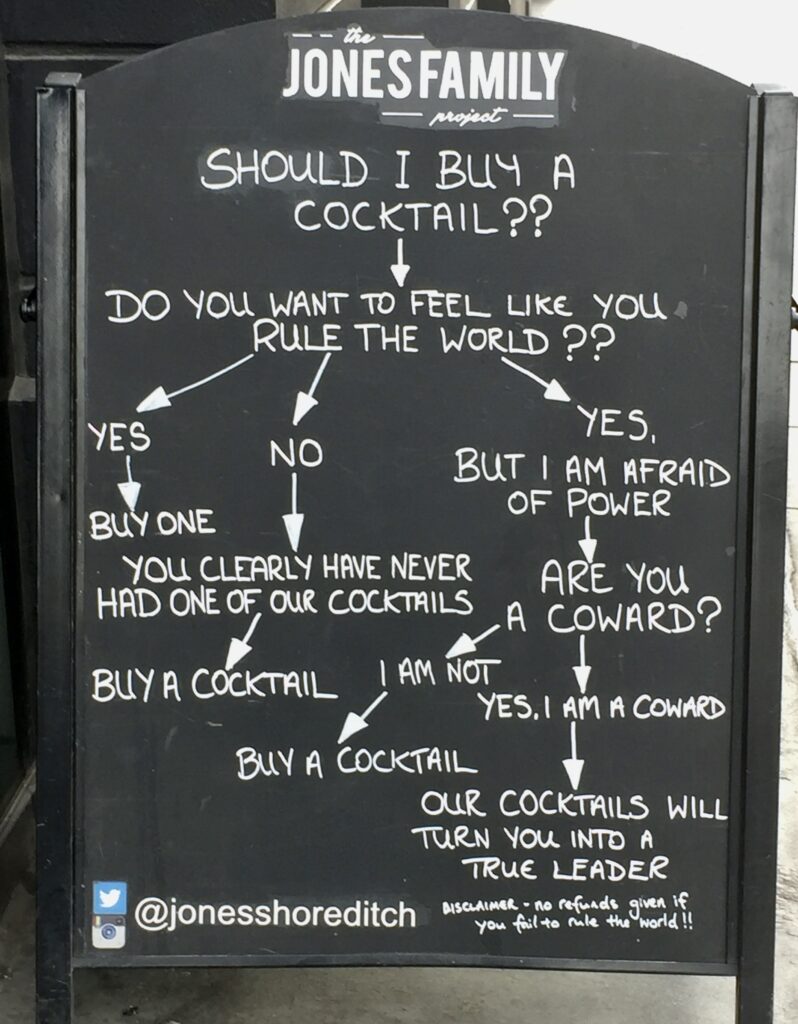 the
JONES FAMILY
project
SHOULD I BUY A
COCKTAIL??
DO YOU WANT TO FEEL LIKE YOU
RULE THE WORLD??
YES
BUY ONE
NO
YOU CLEARLY HAVE NEVER
HAD ONE OF OUR COCKTAILS
BUY A COCKTAIL
YES,
BUT I AM AFRAID
OF POWER
ARE YOU
A COWARD?
I AM NOT
BUY A COCKTAIL
YES, I AM A COWARD
OUR COCKTAILS WILL
TURN YOU INTO A
TRUE LEADER
@jonesshoreditch
DISCLAIMER - no refunds given if
you fail to rule the world!!